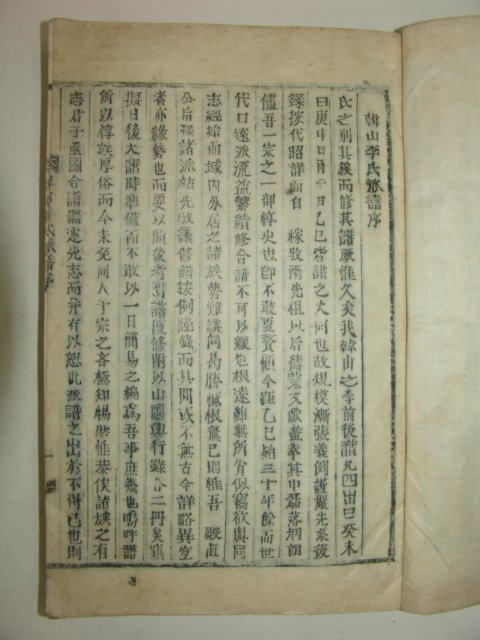 韓山李氏派譜序
氏之別其族而修其譜厥惟久矣我韓山之李前後譜凡四出曰癸未
曰庚申曰酉曰乙巳皆譜之大同也故規模漸張義例謹嚴先系後
錄按代昭詳而自 稼牧兩先祖以后德業文獻盡萃其中磊落炳朗
儘吾一宗之一部惇史也即不敢夏贅顧今距乙巳始三十年餘而世
代日遠派流益繁續修合譜不可以緩也根遠雖無所肖似竊欲與同
志經紀而域內外居之諸族勢難議同曷勝憾恨無已則惟吾 殿直
公后孫諸派姑先啟議修譜按例謹錄而其間或不無古今詳略異宜
者亦緣勢也而要以簡後考焉譜既修附以山圖與行錄合二冊矣竊
擬日後大譜時準備而不敢以一日簡易之編為吾事庶幾也嗚呼譜
所以惇族厚俗而今未免同人于宗之吝極知惕然惟蘄俟諸族之有
志君子亟圖合譜繼述先志而并有以恕此派譜之出於不得已也則
韓山李氏派譜序
一